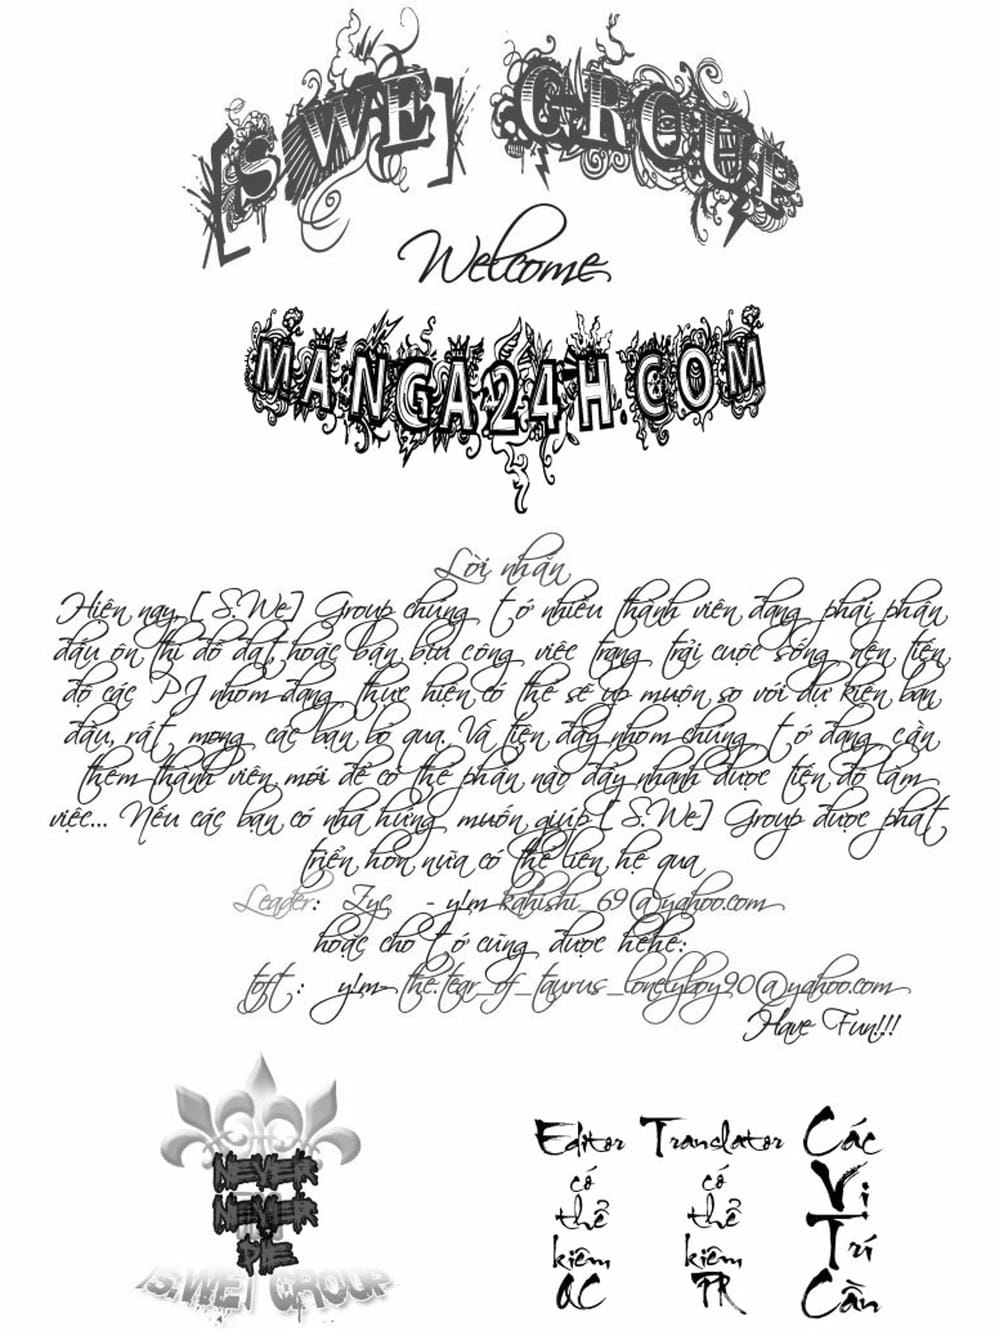 [S.WE] GROUP
Welcome
MANGA24H.COM
Lời nhắn
Hiện nay, [S.We] Group chúng tớ nhiều thành viên đang phải phấn
đấu ôn thi đỗ đạt, hoặc bận bịu công việc trang trải cuộc sống nên tiến
độ các PJ nhóm đang thực hiện có thể sẽ up muộn so với dự kiến ban
đầu, rất mong các bạn bỏ qua. Và tiện đây nhóm chúng tớ đang cần
thêm thành viên mới để có thể phần nào đẩy nhanh được tiến độ làm
việc... Nếu các bạn có nhã hứng muốn giúp [S.We] Group được phát
triển hơn nữa có thể liên hệ qua
Leader: Zye - y!m kahishi_69@yahoo.com
hoặc cho tớ cũng được hêhê:
toft : y!m- the.tear_of_taurus_lonelyboy90@yahoo.com
Have Fun!!!
NEVER
NEVER
DIE
[S.WE] GROUP
Các
Vị
Trí
Cần
Translator
có
thể
kiêm
PR
Editor
có
thể
kiêm
QC